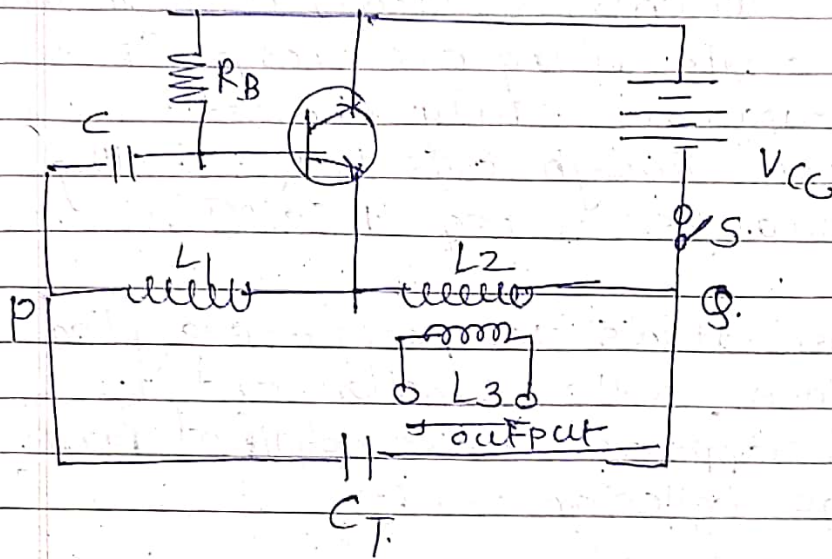 RB
C
VCC
S.
L1
L2
P
Q.
L3
output
CT.